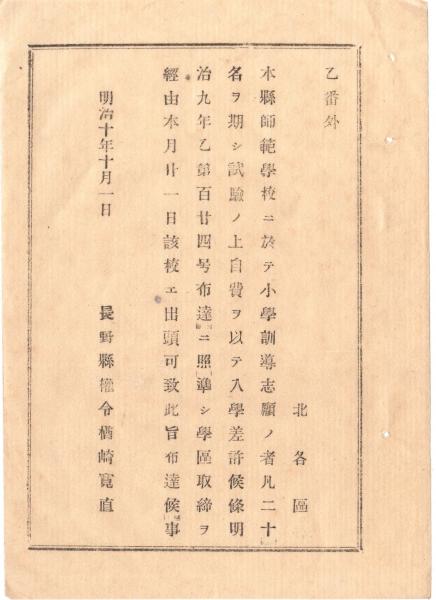 乙番外
北各區
本縣師範學校ニ於テ小學訓導志願ノ者凡二十
名ヲ期シ試驗ノ上自費ヲ以テ入學差許候條明
治九年乙第百廿四号布達ニ照準シ學區取締ヲ
經由本月廿一日該校エ出頭可致此旨布達候事
明治十年十月一日
長野縣權令楢崎寬直